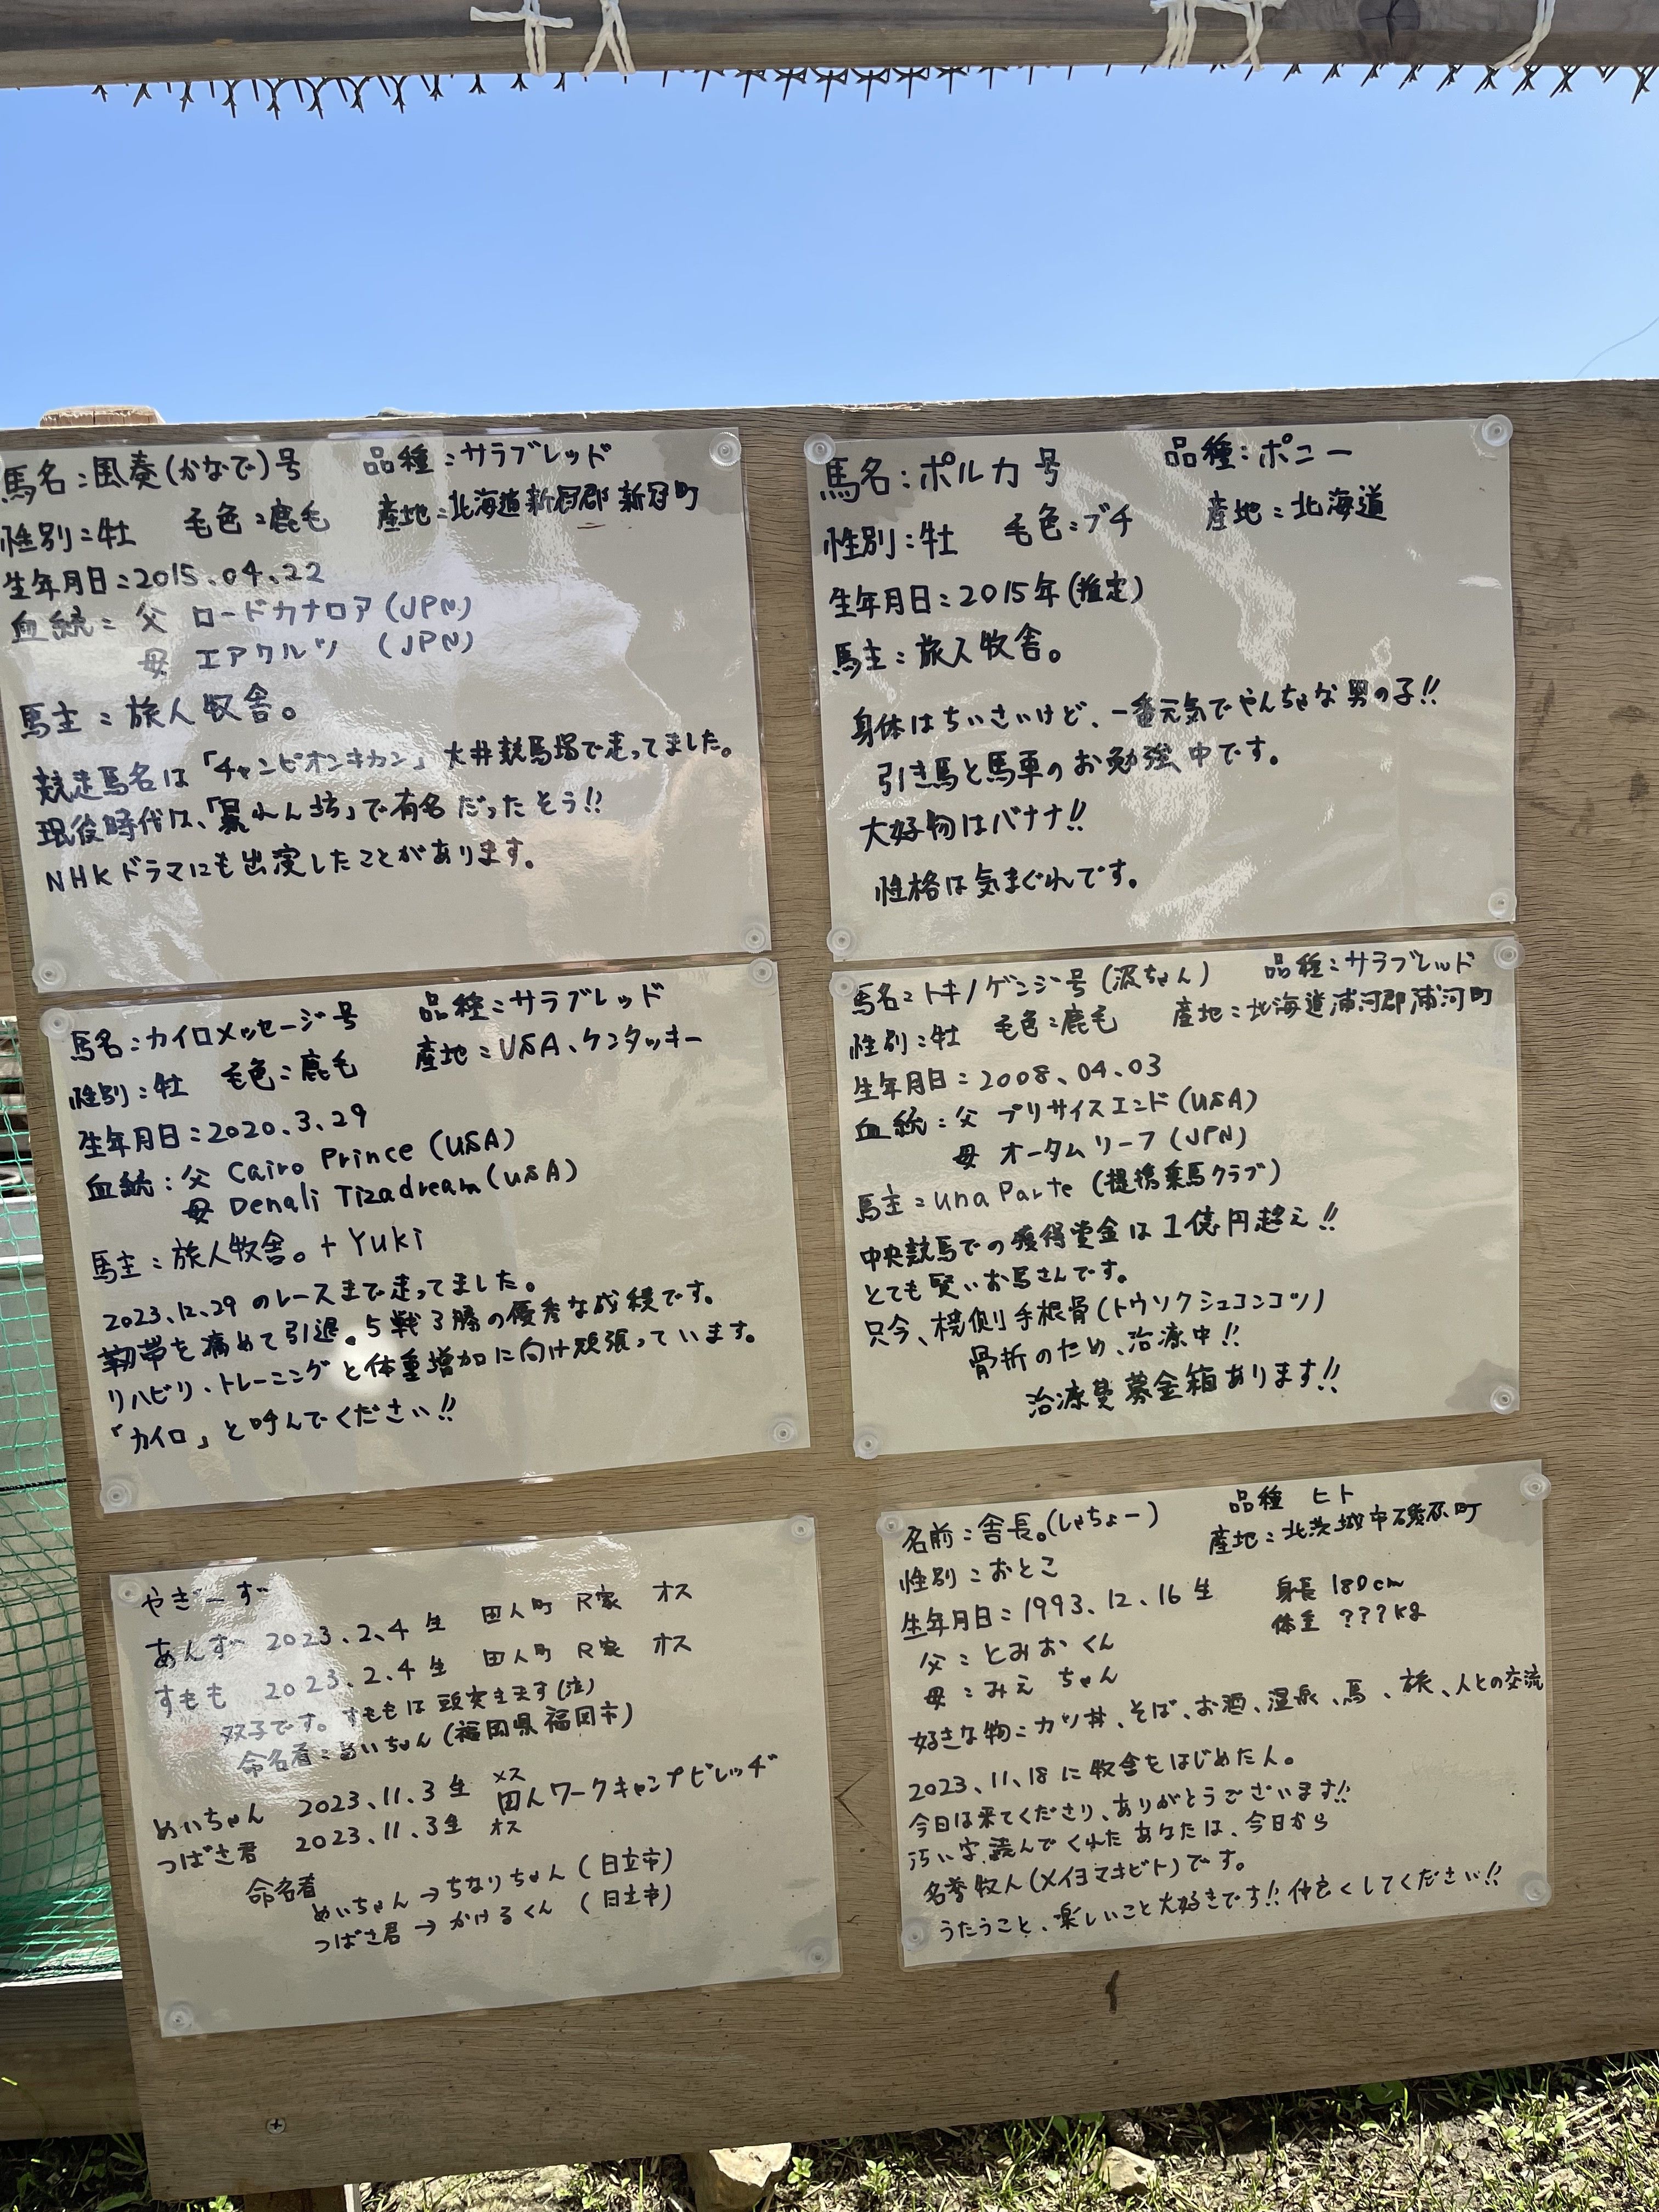 馬名：風奏(かなで)号　品種：サラブレッド
性別：牡　毛色：鹿毛　産地：北海道新冠郡新冠町
生年月日：2015.04.22
血統：父 ロードカナロア(JPN)
母 エアクルツ (JPN)
馬主：旅人牧舎。
競走馬名は「チャンピオンキカン」大井競馬場で走ってました。
現役時代は、「暴れん坊」で有名だったそう!!
NHKドラマにも出演したことがあります。
馬名：ポルカ号　品種：ポニー
性別：牡　毛色：ブチ　産地：北海道
生年月日：2015年(推定)
馬主：旅人牧舎。
身体はちいさいけど、一番元気でやんちゃな男の子!!
引き馬と馬車のお勉強中です。
大好物はバナナ!!
性格は気まぐれです。
馬名：カイロメッセージ号　品種：サラブレッド
性別：牡　毛色：鹿毛　産地：USA、ケンタッキー
生年月日：2020.3.29
血統：父 Cairo Prince (USA)
母 Denali Tizadream (USA)
馬主：旅人牧舎。+ Yuki
2023.12.29のレースまで走ってました。
靭帯を痛めて引退。5戦3勝の優秀な成績です。
リハビリ・トレーニングと体重増加に向け頑張っています。
「カイロ」と呼んでください!!
馬名：トキノゲンジ号(波ちゃん)　品種：サラブレッド
性別：牡　毛色：鹿毛　産地：北海道浦河郡浦河町
生年月日：2008.04.03
血統：父 プリサイスエンド(USA)
母 オータムリーフ(JPN)
馬主：una Parte (提携乗馬クラブ)
中央競馬での獲得賞金は1億円超え!!
とても賢いお馬さんです。
只今、橈側手根骨(トウソクシュコンコツ)
骨折のため、治療中!!
治療費募金箱あります!!
やぎーず
あんず 2023.2.4生 田人町 R家 オス
すもも 2023.2.4生 田人町 R家 オス
双子です。すももは頭突き王です(泣)
命名者：めいちゃん(福岡県福岡市)
めいちゃん 2023.11.3生 メス 田人ワークキャンプビレッヂ
つばさ君 2023.11.3生 オス
命名者
めいちゃん→ちなりちゃん(日立市)
つばさ君→かけるくん (日立市)
名前：舎長。(しゃちょー)　品種 ヒト
性別：おとこ　産地：北茨城市磯原町
生年月日：1993.12.16生　身長 180cm
父：とみおくん　体重 ???kg
母：みえちゃん
好きな物：カツ丼、そば、お酒、温泉、馬、旅、人との交流
2023.11.18に牧舎をはじめた人。
今日は来てくださり、ありがとうございます!!
汚い字読んでくれたあなたは、今日から
名誉牧人(メイヨマキビト)です。
うたうこと、楽しいこと大好きです!!仲良くしてください!!